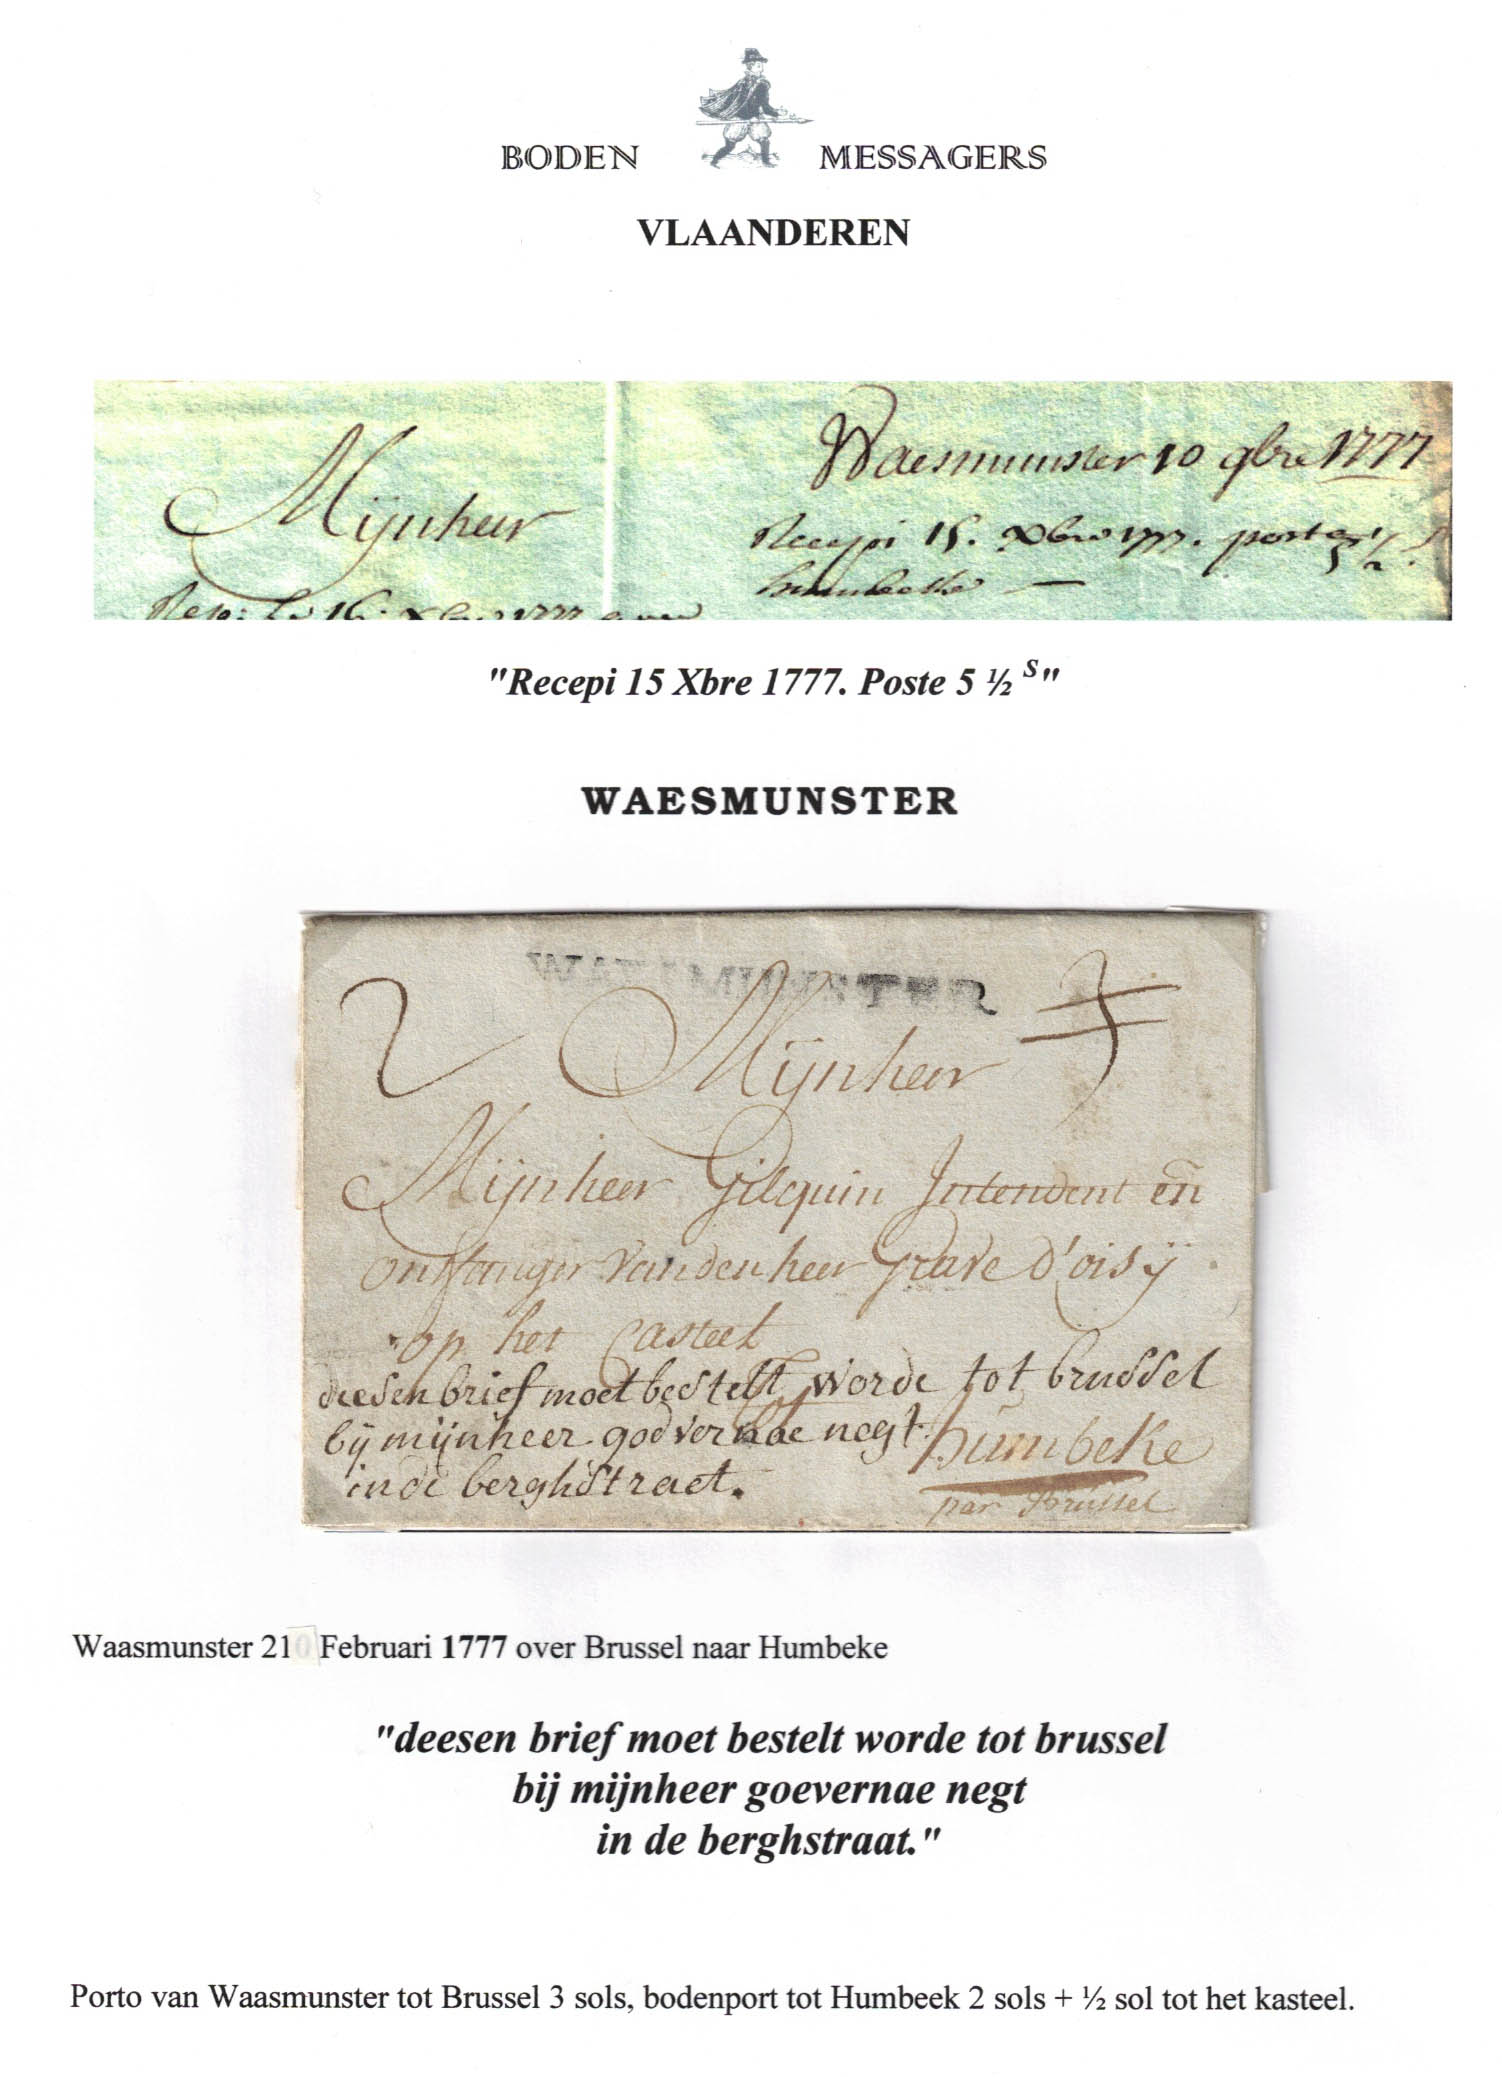 BODEN MESSAGERS
VLAANDEREN
Waesmunster 10 9bre 1777
Mijnheer
Recepi 15. Xbre 1777. port 5 1/2 s
humbeeke —
Rep: le 16. Xbre 1777
"Recepi 15 Xbre 1777. Poste 5 ½ s"
WAESMUNSTER
WAESMUNSTER
2 Mijnheer 3
Mijnheer Gilquin Intendent en
ontfanger vanden heer Grave d'oisij
op het Casteel
deesen brief moet bestelt worde tot brussel
bij mijnheer goevernae negt
in de berghstraet.
humbeke
par Brussel
Waasmunster 210 Februari 1777 over Brussel naar Humbeke
"deesen brief moet bestelt worde tot brussel
bij mijnheer goevernae negt
in de berghstraat."
Porto van Waasmunster tot Brussel 3 sols, bodenport tot Humbeek 2 sols + ½ sol tot het kasteel.